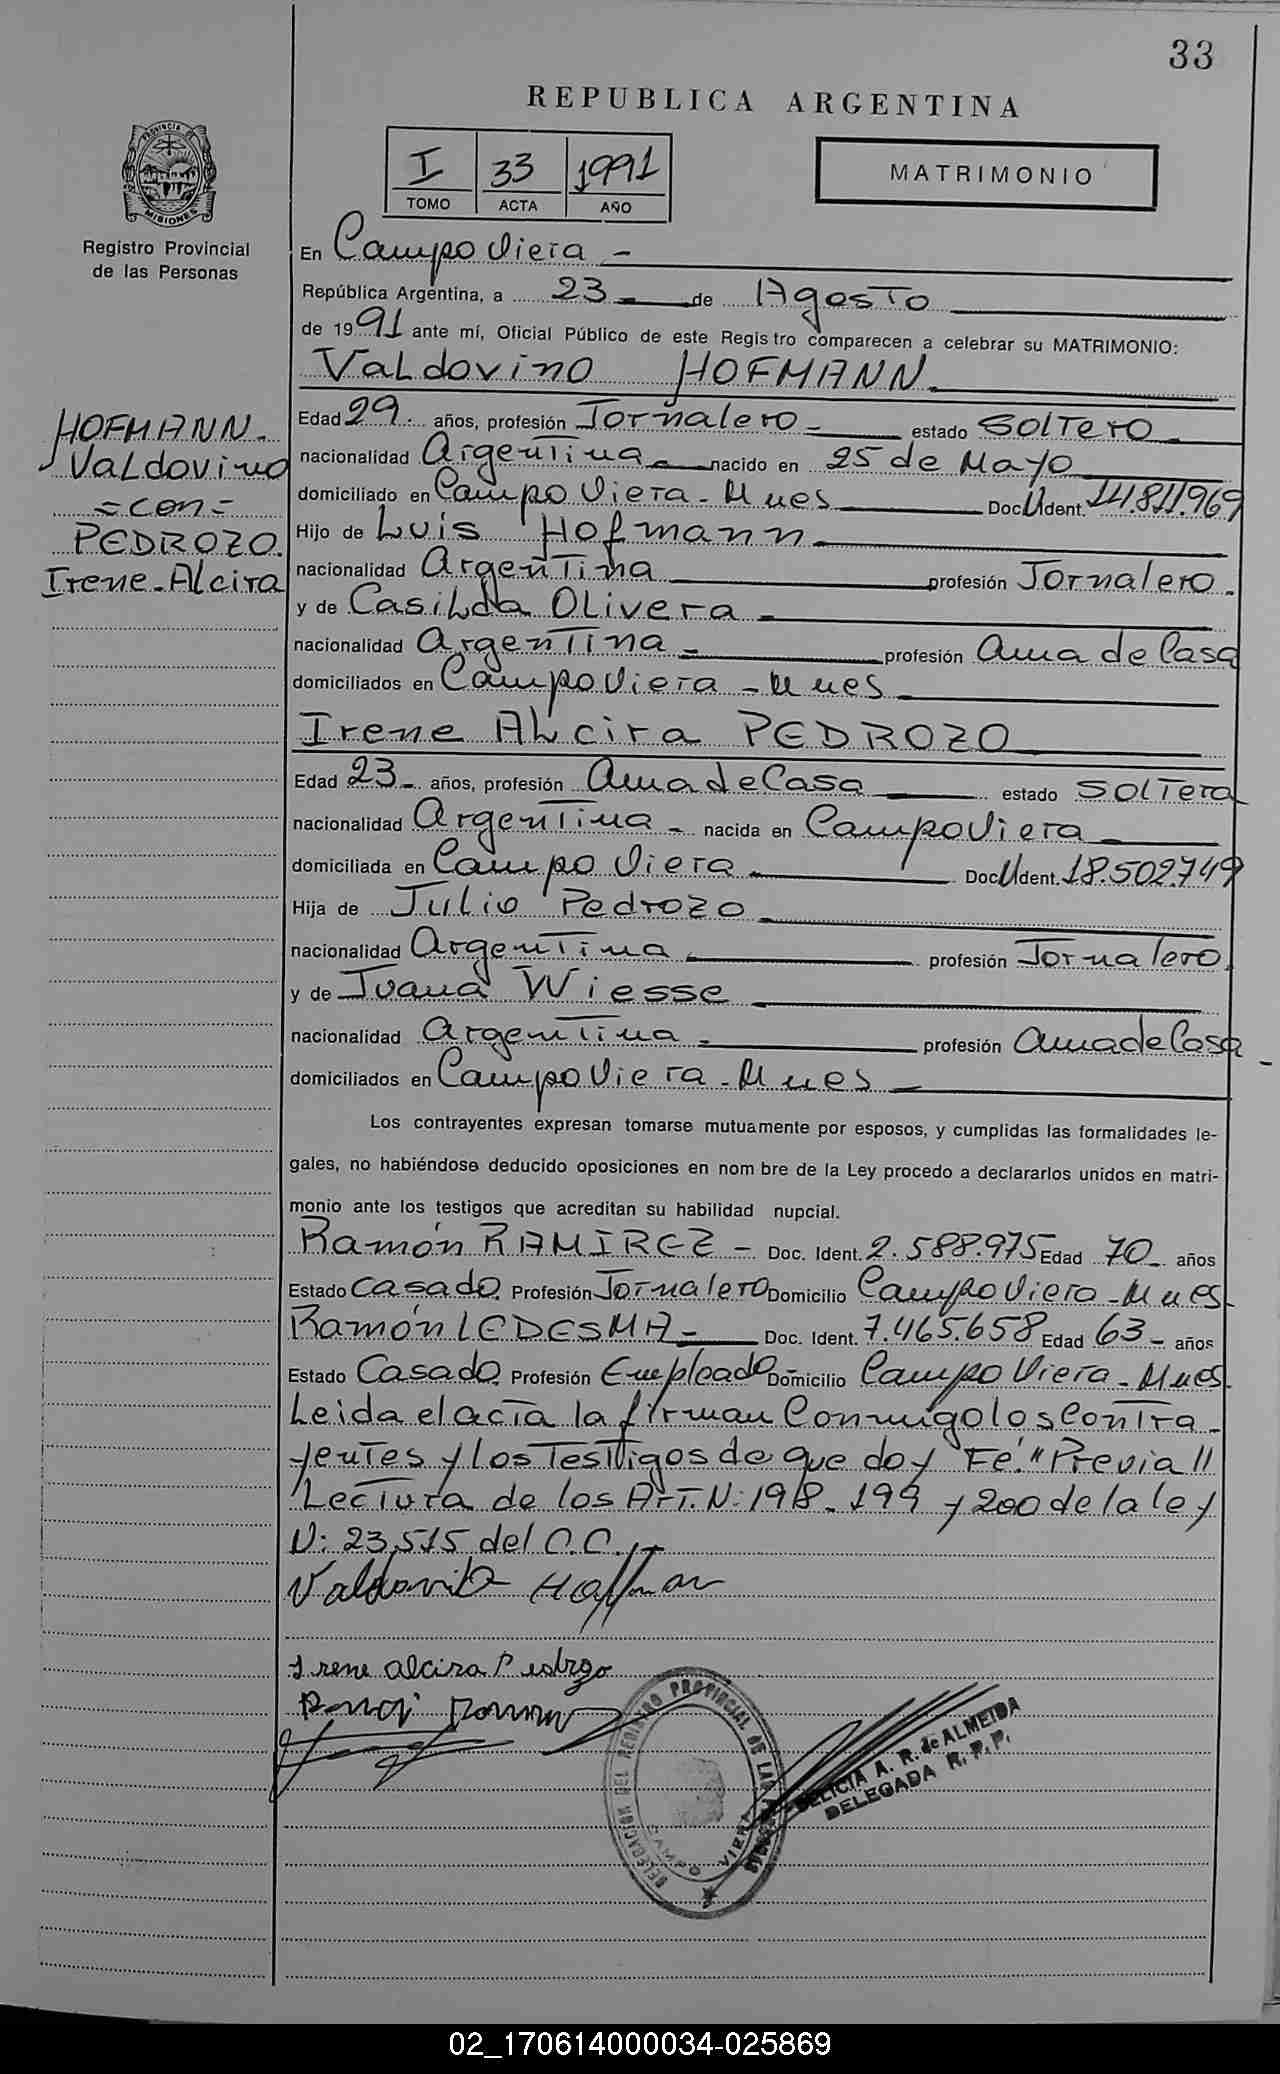 33
REPUBLICA ARGENTINA
I 33 1991
TOMO ACTA AÑO
MATRIMONIO
PROVINCIA DE MISIONES
Registro Provincial
de las Personas
HOFMANN.
Valdovino
=con=
PEDROZO.
Irene-Alcira
En Campo Viera -
República Argentina, a 23 de Agosto
de 1991 ante mí, Oficial Público de este Registro comparecen a celebrar su MATRIMONIO:
Valdovino HOFMANN.
Edad 29. años, profesión Jornalero- estado Soltero
nacionalidad Argentina- nacido en 25 de Mayo
domiciliado en Campo Viera-Mnes Doc. U Ident. 14.811.969
Hijo de Luis Hofmann.
nacionalidad Argentina profesión Jornalero.
y de Casilda Olivera-
nacionalidad Argentina- profesión Ama de Casa
domiciliados en Campo Viera-Mnes
Irene Alcira PEDROZO
Edad 23- años, profesión Ama de Casa estado Soltera
nacionalidad Argentina- nacida en Campo Viera
domiciliada en Campo Viera Doc. U Ident. 18.502.749
Hija de Julio Pedrozo
nacionalidad Argentina profesión Jornalero.
y de Juana Wiesse
nacionalidad Argentina- profesión Ama de Casa
domiciliados en Campo Viera-Mnes
Los contrayentes expresan tomarse mutuamente por esposos, y cumplidas las formalidades le-
gales, no habiéndose deducido oposiciones en nombre de la Ley procedo a declararlos unidos en matri-
monio ante los testigos que acreditan su habilidad nupcial.
Ramón RAMIREZ - Doc. Ident. 2.588.975 Edad 70- años
Estado Casado. Profesión Jornalero Domicilio Campo Viera-Mnes
Ramón LEDESMA- Doc. Ident. 7.465.658 Edad 63- años
Estado Casado. Profesión Empleado Domicilio Campo Viera-Mnes
Leida el acta la firman Conmigo los Contra
yentes y los Testigos de que doy Fé." Previa"
Lectura de los Art. N: 198-199 y 200 de la ley
N: 23.515 del C.C.
Valdovino Hoffman
Irene alcira Pedrozo
DELEGACION DEL REGISTRO PROVINCIAL DE LAS
CAMPO VIERA
A. R. de ALMEIDA
DELEGADA R. P. P.
02_170614000034-025869